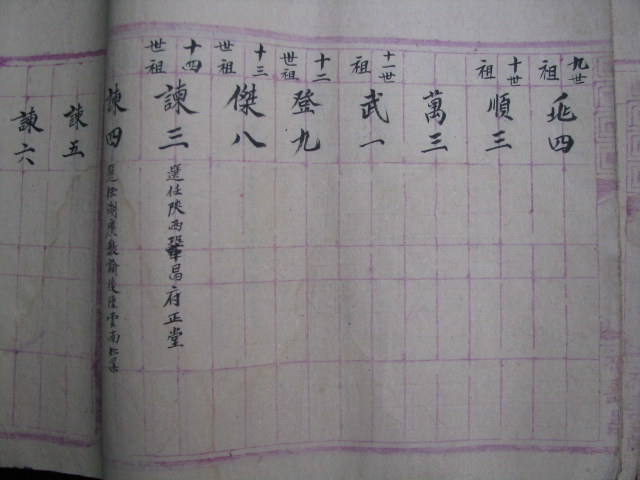 九世祖
兆四
十世祖
順三
萬三
十一世祖
武一
十二世祖
登九
十三世祖
傑八
十四世祖
諫三 選任陝西鞏昌府正堂
諫四 選任湖廣教諭後陞雲南知縣
諫五
諫六